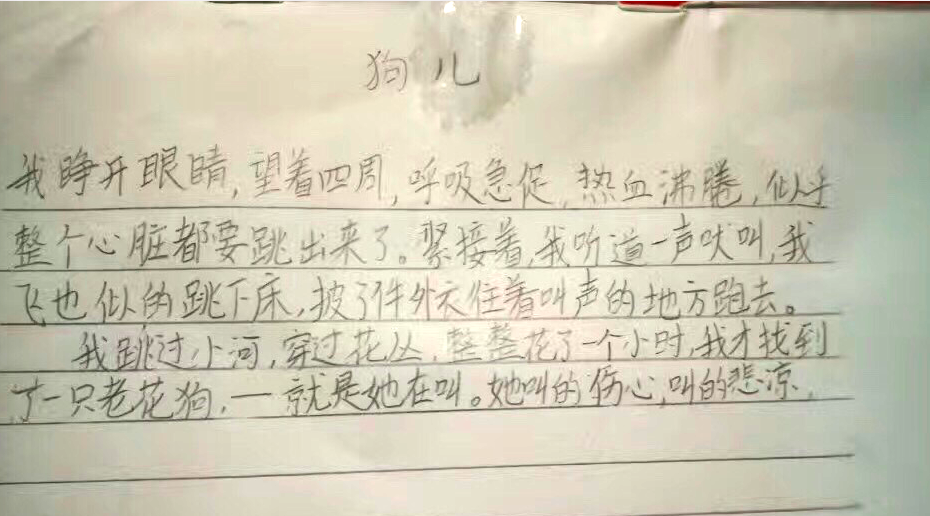 狗儿
我睁开眼睛,望着四周,呼吸急促,热血沸腾,似乎
整个心脏都要跳出来了。紧接着,我听道一声吠叫,我
飞也似的跳下床,披了件外衣住着叫声的地方跑去。
我跳过小河,穿过花丛,整整花了一个小时,我才找到
了一只老花狗,一就是她在叫。她叫的伤心,叫的悲凉,